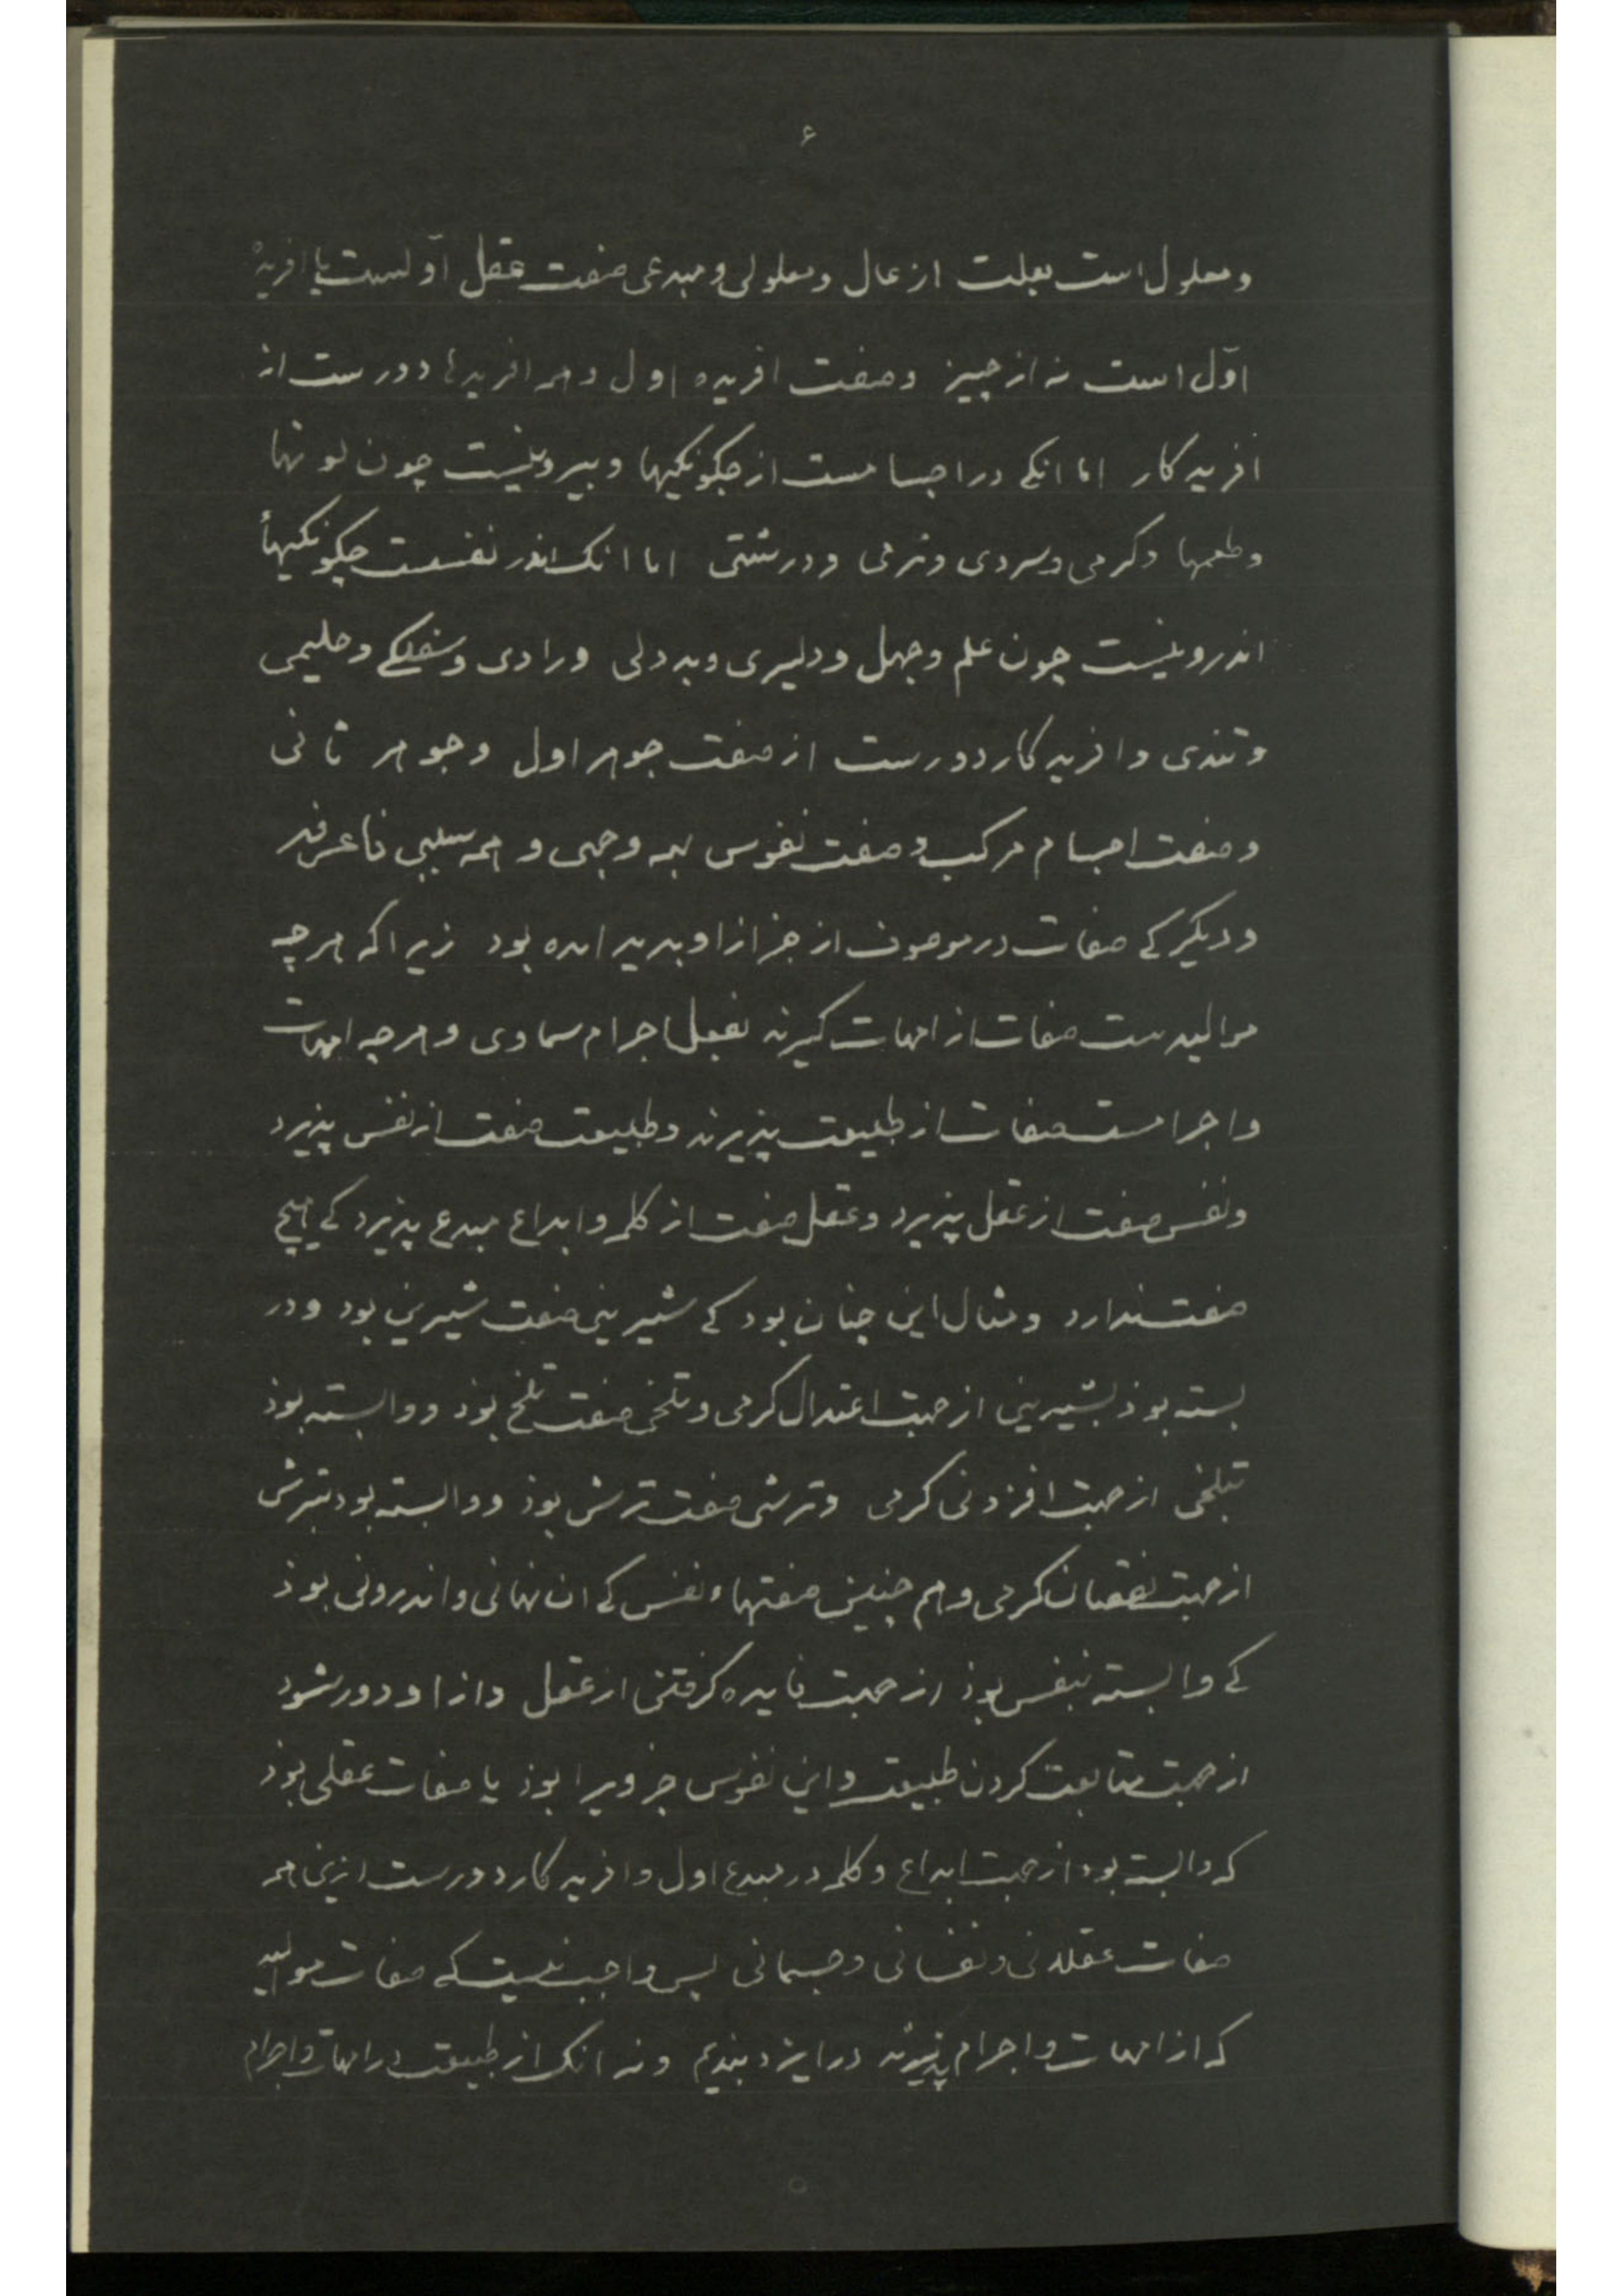 ۶
و معلول است بعلت از عال و معلولی و مبدعی صفت عقل اولست یا افریدهٔ
اوّل است نه از چیز وصفت افریده اول و همه افریدها دورست از
افریدکار اما انکے در اجسامست از چکونکیها و بیرونیست چون لونها
وطعمها وکرمی وسردی ونرمی ودرشتی اما انک اندر نفسست چکونکیهأ
اندرونیست چون علم وجهل ودلیری وبددلی ورادی وسفلکے وحلیمی
وتندی وافریدکار دورست از صفت جوهر اول وجوهر ثانی
وصفت اجسام مرکب وصفت نفوس بهمه وجهی و همه سببی فاعرفه
ودیکر کے صفات در موصوف از جز ازاو بدید امده بود زیرا که هرچه
موالیدست صفات از امهات کیرند بفعل اجرام سماوی وهرچه امهات
واجرامست صفات از طبیعت پذیرند وطبیعت صفت از نفس پذیرد
ونفس صفت از عقل پذیرد وعقل صفت از کلمه وابداع مبدع پذیرد کے هیچ
صفت ندارد ومثال این چنان بود کے شیرینی صفت شیرین بود ودر
بسته بوذ بشیرینی از جهت اعتدال کرمی وتلخی صفت تلخ بوذ ووابسته بوذ
بتلخی از جهت افزونی کرمی وترشی صفت ترش بوذ ووابسته بود بترش
از جهت نقصان کرمی وهم چنین صفتهاء نفس کے ان نهانی واندرونی بوذ
کے وابسته بنفس بوذ از جهت فایده کرفتن از عقل وازاو دور شود
از جهت متابعت کردن طبیعت واین نفوس جزویرا بوذ یا صفات عقلی بوذ
که وابسته بود از جهت ابداع وکلمه در مبدع اول وافریدکار دورست ازین همه
صفات عقلانی ونفسانی وجسمانی پس واجب نیست کے صفات موالید
که از امهات واجرام پذیرند در ایزد بندیم ونه انک از طبیعت در امهات واجرام